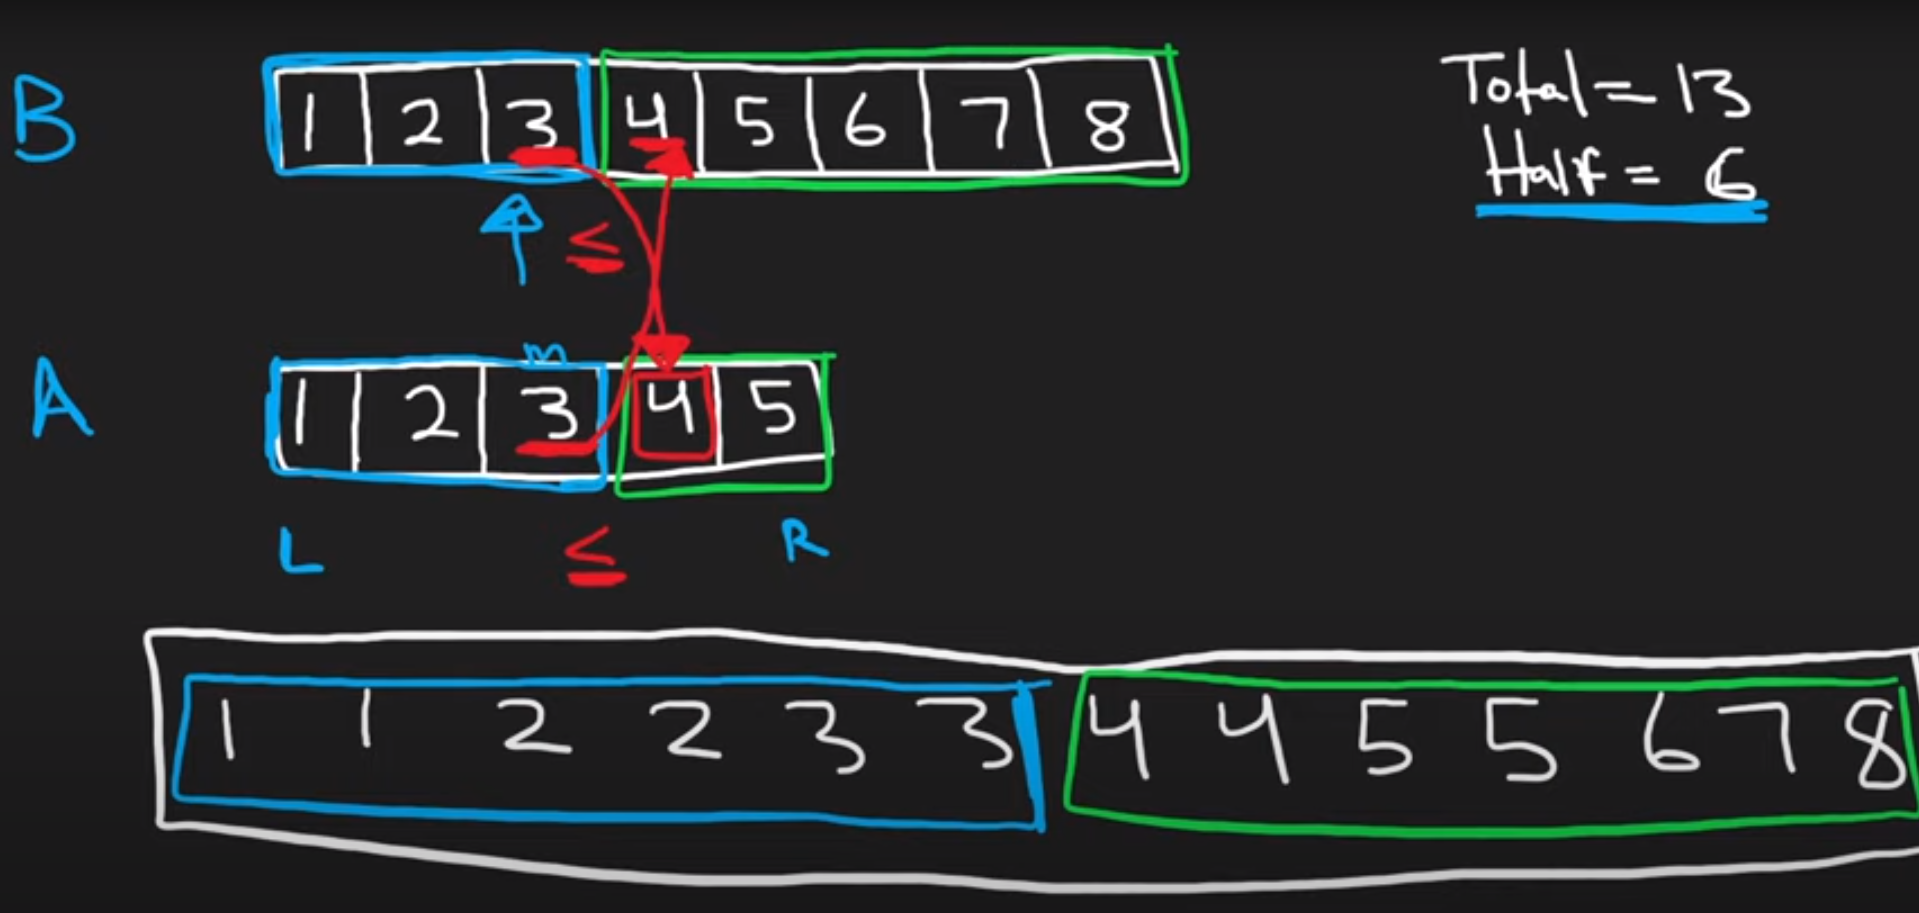 B 1 2 3 4 5 6 7 8
Total = 13
Half = 6
≤
m
A 1 2 3 4 5
L ≤ R
1 1 2 2 3 3 4 4 5 5 6 7 8